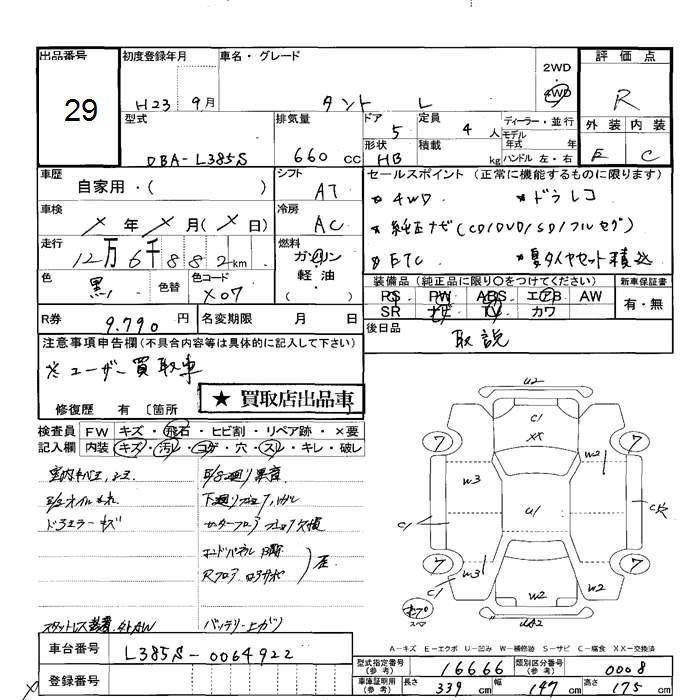 出品番号 初度登録年月 車名・グレード 2WD 評価点
29 H23 9月 タント L 4WD R
型式 排気量 ドア 定員 ディーラー・並行 外装 内装
モデル
DBA-L385S 660 cc 5 4 人 年式 年 E C
形状 積載
HB kg ハンドル 左・右
車歴 シフト セールスポイント(正常に機能するものに限ります)
自家用・( ) AT * 4WD * ドラレコ
車検 冷房
× 年 × 月(× 日) AC * 純正ナビ(CD/DVD/SD/フルセグ)
走行 燃料
12万6千882km ガソリン * ETC * 夏タイヤセット積込
色 色替 色コード 軽油
黒 X07 ( )
装備品(純正品に限り○をつけてください) 新車保証書
PS PW ABS エアB AW 有・無
SR ナビ TV カワ
R券 9.790 円 名変期限 月 日 後日品
取説
注意事項申告欄(不具合内容等は具体的に記入して下さい)
※ユーザー買取車
★ 買取店出品車
修復歴 有 〔箇所 〕
検査員 FW キズ・飛石・ヒビ割・リペア跡・×要
記入欄 内装 キズ・汚レ・コゲ・穴・スレ・キレ・破レ
下廻り
ドアミラーキズ
バッテリー上がり
車台番号 L385S-0064922
登録番号
U2
C1
XX
7 7
W3 W2
C1 U1
7 7
W3 W2
C1 W2
スペア
UA2
A-キズ E-エクボ U-凹み W-補修跡 S-サビ C-腐食 XX-交換済
型式指定番号(参考) 16666 類別区分番号(参考) 0008
車庫証明用(参考) 長さ 339 cm 幅 147 cm 高さ 175 cm